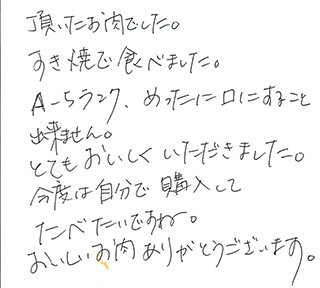 頂いたお肉でした。
すき焼で食べました。
A-5ランク、めったに口にすること
出来ません。
とてもおいしくいただきました。
今度は自分で購入して
たべたいですね〜。
おいしいお肉ありがとうございます。